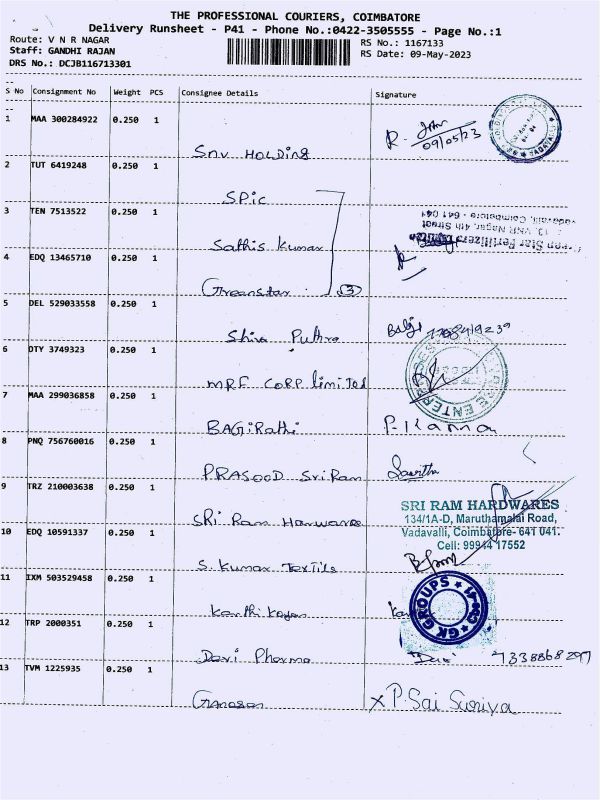 THE PROFESSIONAL COURIERS, COIMBATORE
Delivery Runsheet - P41 - Phone No.:0422-3505555 - Page No.:1
Route: V N R NAGAR
Staff: GANDHI RAJAN
DRS No.: DCJB116713301
RS No.: 1167133
RS Date: 09-May-2023
S No Consignment No Weight PCS Consignee Details Signature
1 MAA 300284922 0.250 1
09/05/23
Snv HOLDING
2 TUT 6419248 0.250 1
SPic
3 TEN 7513522 0.250 1
Sathis Kumar
Green Star Fertilizers
13, VNR Nagar, 4th Street
Vadavalli, Coimbatore - 641 041
4 EDQ 13465710 0.250 1
Greenstar (3)
5 DEL 529033558 0.250 1
Shiva Puthra
Balji
6 OTY 3749323 0.250 1
MRF CORP limited
7 MAA 299036858 0.250 1
BAGiRathi P-Rama
8 PNQ 756760016 0.250 1
PRASOOD SriRam Savitha
9 TRZ 210003638 0.250 1
SRi Ram Harware
SRI RAM HARDWARES
134/1A-D, Maruthamalai Road,
Vadavalli, Coimbatore- 641 041.
Cell: 99944 17552
10 EDQ 10591337 0.250 1
S. Kumar Textile
11 IXM 503529458 0.250 1
GK GROUPS
Karthikeyan
12 TRP 2000351 0.250 1
Devi Pharma Devi 7338868297
13 TVM 1225935 0.250 1
Ganesan x P. Sai Suriya